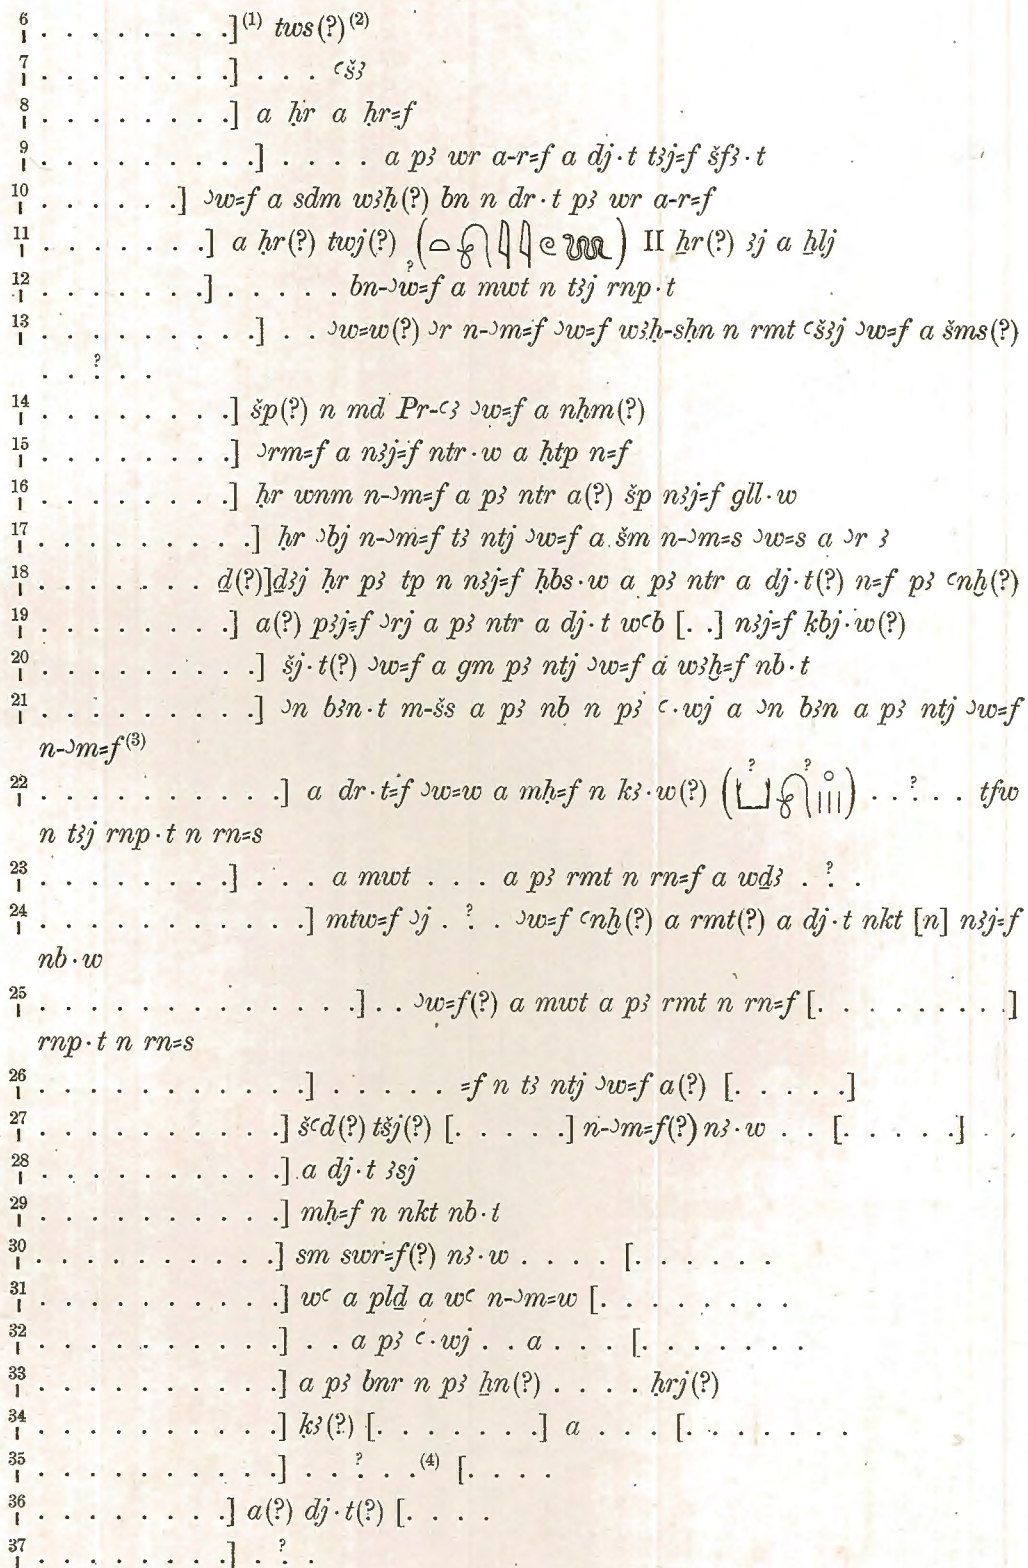 6 . . . . . . . .](1) tws(?)(2)
7 . . . . . . . .] . . . ꜥšꜣ
8 . . . . . . . .] a ḥr a ḥr⸗f
9 . . . . . . . . .] . . . . a pꜣ wr a-r⸗f a dj·t tꜣj⸗f šfꜣ·t
10 . . . . . .] ꜣw⸗f a sdm wꜣḥ(?) bn n dr·t pꜣ wr a-r⸗f
11 . . . . . . .] a ḥr(?) twj(?) ( ) II ẖr(?) ꜣj a ẖlj
12 . . . . . . .] . . . . . bn-ꜣw⸗f a mwt n tꜣj rnp·t
13 . . . . . . . . .] . . ꜣw⸗w(?) ꜣr n-ꜣm⸗f ꜣw⸗f wꜣḥ-sḥn n rmt ꜥšꜣj ꜣw⸗f a šms(?)
. . ? . .
14 . . . . . . . .] šp(?) n md Pr-ꜥꜣ ꜣw⸗f a nḥm(?)
15 . . . . . . . .] ꜣrm⸗f a nꜣj⸗f ntr·w a ḥtp n⸗f
16 . . . . . . . .] ḥr wnm n-ꜣm⸗f a pꜣ ntr a(?) šp nꜣj⸗f gll·w
17 . . . . . . . . .] ḥr ꜣbj n-ꜣm⸗f tꜣ ntj ꜣw⸗f a šm n-ꜣm⸗s ꜣw⸗s a ꜣr ꜣ
18 . . . . . . . ḏ(?)]ḏꜣj ḥr pꜣ tp n nꜣj⸗f ḥbs·w a pꜣ ntr a dj·t(?) n⸗f pꜣ ꜥnḫ(?)
19 . . . . . . . . .] a(?) pꜣj⸗f ꜣrj a pꜣ ntr a dj·t wꜥb [. .] nꜣj⸗f ḳbj·w(?)
20 . . . . . . . . .] šj·t(?) ꜣw⸗f a gm pꜣ ntj ꜣw⸗f a wꜣḫ⸗f nb·t
21 . . . . . . . . .] ꜣn bꜣn·t m-šs a pꜣ nb n pꜣ ꜥ·wj a ꜣn bꜣn a pꜣ ntj ꜣw⸗f
n-ꜣm⸗f(3)
22 . . . . . . . . . . .] a dr·t⸗f ꜣw⸗w a mḥ⸗f n kꜣ·w(?) ( ) . . ? . . tfw
n tꜣj rnp·t n rn⸗s
23 . . . . . . . . .] . . . a mwt . . . a pꜣ rmt n rn⸗f a wḏꜣ . ? .
24 . . . . . . . . . . . .] mtw⸗f ꜣj . ? . ꜣw⸗f ꜥnḫ(?) a rmt(?) a dj·t nkt [n] nꜣj⸗f
nb·w
25 . . . . . . . . . . . . . .] . . ꜣw⸗f(?) a mwt a pꜣ rmt n rn⸗f [. . . . . . . . .]
rnp·t n rn⸗s
26 . . . . . . . . . . . .] . . . . . . ⸗f n tꜣ ntj ꜣw⸗f a(?) [. . . . .]
27 . . . . . . . . . . .] šꜥd(?) tšj(?) [. . . . .] n-ꜣm⸗f(?) nꜣ·w . . [. . . . .] . .
28 . . . . . . . . . . .] a dj·t ꜣsj
29 . . . . . . . . . . .] mḥ⸗f n nkt nb·t
30 . . . . . . . . . . .] sm swr⸗f(?) nꜣ·w . . . . [. . . . . .
31 . . . . . . . . . . .] wꜥ a plḏ a wꜥ n-ꜣm⸗w [. . . . . . . .
32 . . . . . . . . . . .] . . a pꜣ ꜥ·wj . . a . . . [. . . . . . .
33 . . . . . . . . . . .] a pꜣ bnr n pꜣ ẖn(?) . . . . ḥrj(?)
34 . . . . . . . . . . .] kꜣ(?) [. . . . . . .] a . . . [. . . . . . .
35 . . . . . . . . . . .] . . ? . . (4) [. . . .
36 . . . . . . . . .] a(?) dj·t(?) [. . . .
37 . . . . . . . .] . ? .